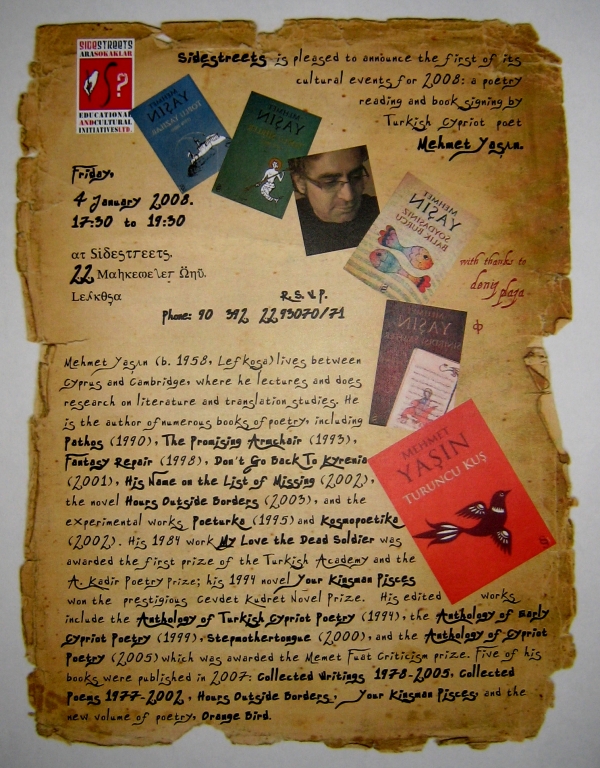 SIDESTREETS
ARASOKAKLAR
EDUCATIONAL
ANDCULTURAL
INITIATIVESLTD.
Sidestreets is pleased to announce the first of its
cultural events for 2008: a poetry
reading and book signing by
Turkish Cypriot poet
Mehmet Yaşın.
Friday,
4 January 2008.
17:30 to 19:30
at Sidestreets.
22 Mahkemeler Önü.
Lefkoşa
R.S.V.P.
Phone: 90 392 2293070/71
with thanks to
deniz plaza
MEHMET
YAŞIN
MEHMET
YAŞIN
MEHMET
YAŞIN
SOYDAŞINIZ
BALIK BURCU
MEHMET
YAŞIN
MEHMET
YAŞIN
TURUNCU KUŞ
Mehmet Yaşın (b. 1958, Lefkoşa) lives between
Cyprus and Cambridge, where he lectures and does
research on literature and translation studies. He
is the author of numerous books of poetry, including
Pathos (1990), The Promising Armchair (1993),
Fantasy Repair (1998), Don't Go Back To Kyrenia
(2001), His Name on the List of Missing (2002),
the novel Hours Outside Borders (2003), and the
experimental works Poeturka (1995) and Kosmopoetika
(2002). His 1984 work My Love the Dead Soldier was
awarded the first prize of the Turkish Academy and the
A. Kadir Poetry Prize; his 1994 novel Your Kinsman Pisces
won the prestigious Cevdet Kudret Novel Prize. His edited works
include the Anthology of Turkish Cypriot Poetry (1994), the Anthology of Early
Cypriot Poetry (1999), Stepmothertongue (2000), and the Anthology of Cypriot
Poetry (2005) which was awarded the Memet Fuat Criticism prize. Five of his
books were published in 2007: Collected Writings 1978-2005, Collected
Poems 1977-2002, Hours Outside Borders, Your Kinsman Pisces, and the
new volume of poetry, Orange Bird.